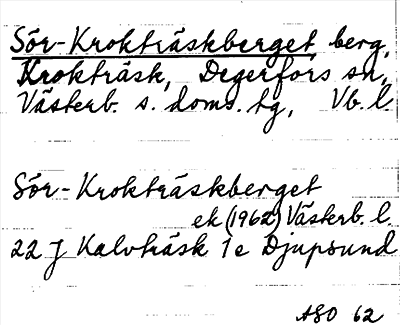 Sör-Krokträskberget, berg,
Krokträsk, Degerfors sn,
Västerb. s. doms. tg, Vb. l.
Sör-Krokträskberget
ek (1962) Västerb. l.
22 J Kalvträsk 1 e Djupsund
ASO 62